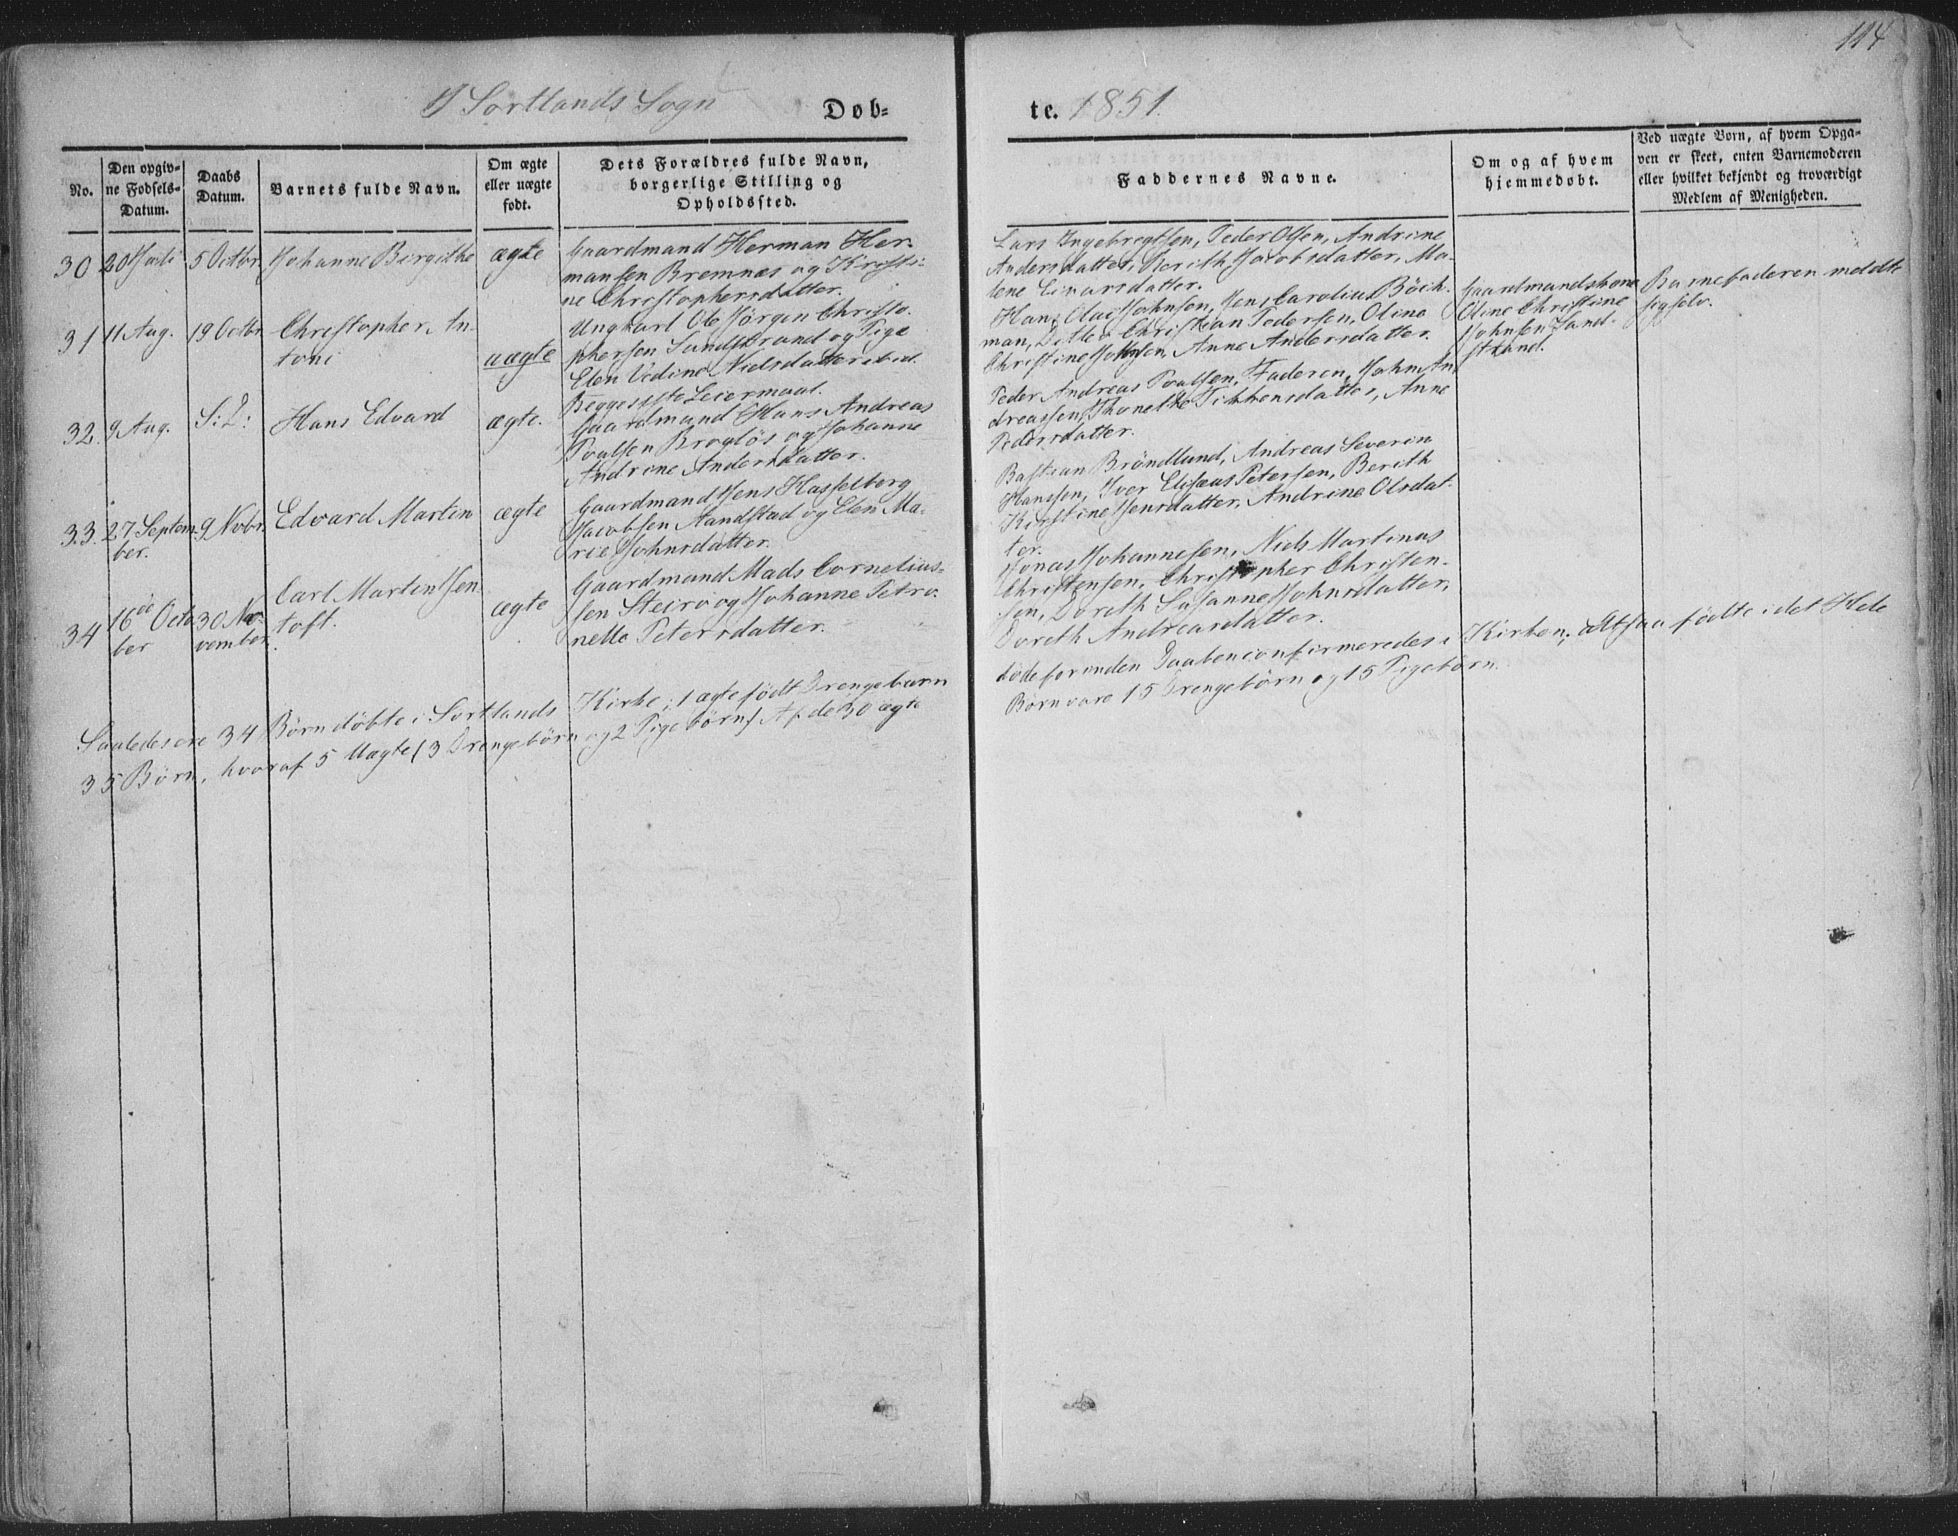 114
I Sortlands Sogn
Døb=
te. 1851.
No.
Den opgiv=
ne Fødsels=
Datum.
Daabs
Datum.
Barnets fulde Navn.
Om ægte
eller uægte
født.
Dets Forældres fulde Navn,
borgerlige Stilling og
Opholdssted.
Faddernes Navne.
Om og af hvem
hjemmedøbt.
Ved uægte Børn, af hvem Opga=
ven er skeet, enten Barnemoderen
eller hvilket bekjendt og troværdigt
Medlem af Menigheden.
30
20 Juli
5 Octbr.
Johanne Birgithe
ægte
Gaardmand Herman Her-
mansen Bremnes og Kirsti-
ne Christophersdatter.
Lars Ingebregtsen, Peder Olsen, Andrine
Andersdatter, Berith Jacobsdatter, Ma-
lene Einarsdatter.
31
11 Aug.
19 Octbr.
Christopher An-
toni
uægte
Ungkarl Ole Jørgen Christo-
phersen Sandstrand og Pige
Elen Vedine Nielsdatter ibid.
Begges 1ste Leiermaal.
Hans Olai Johnsen, Jens Carolius Böch-
man, Christian Pedersen, Oline
Christine Johnsen, Anne Andersdatter.
Gaardmandskone
Oline Christine
Johnsen Sand-
strand.
Barnefaderen meldte
sig selv.
32.
9 Aug.
S: D:
Hans Edvard
ægte.
Gaardmand Hans Andreas
Poulsen Brogløs og Johanne
Andrine Andersdatter.
Peder Andreas Poulsen, Faderen, John An-
dreassen, Anne
Pedersdatter.
33.
27 Septem-
ber.
9 Novbr.
Edvard Martin
ægte
Gaardmand Jens Hasselberg
Jacobsen Aandstad og Elen Ma-
rie Johnsdatter.
Bastian Bröndlund, Andreas Severin
Hanssen, Iver Elisæus Petersen, Berith
Kirstine Jensdatter, Andrine Olsdat-
ter.
34
16de Octo-
ber
30 No-
vember.
Carl Martin Jen-
toft.
ægte
Gaardmand Mads Cornelius-
sen Steiro og Johanne Petro-
nelle Petersdatter.
Jonas Johannesen, Niels Martinus
Christensen, Christopher Christen-
sen, Doreth Susanne Johnsdatter,
Doreth Andreasdatter.
Saaledes ere 34 Børn døbte i Sortlands Kirke; 1 ægte født Drengebarn
døde forinden Daaben confirmeredes i Kirken; altsaa fødte i det Hele
35 Børn, hvoraf 5 Uægte (3 Drengebørn og 2 Pigebørn) Af de 30 ægte
Børn vare 15 Drengebørn og 15 Pigebørn.